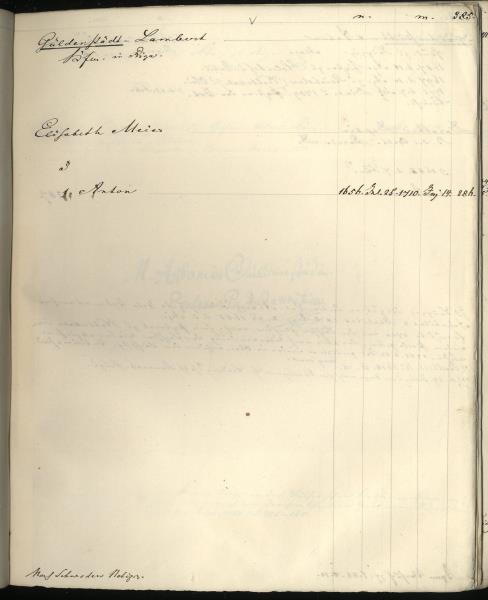 n. m. 385.
Güldenstädt - Lambert
Kfm. in Riga.
Elisabeth Meier
1, Anton 1656. Jul. 28. - 1710. 14. 286.
Nach Schweders Notizen.